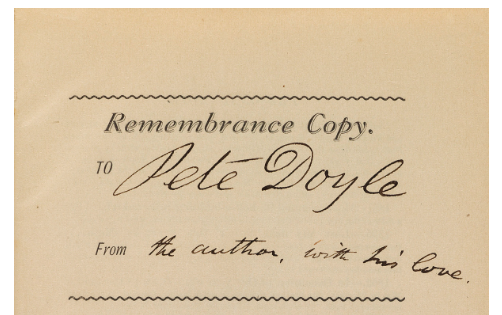 Remembrance Copy.
TO Pete Doyle
From the author, with his love.